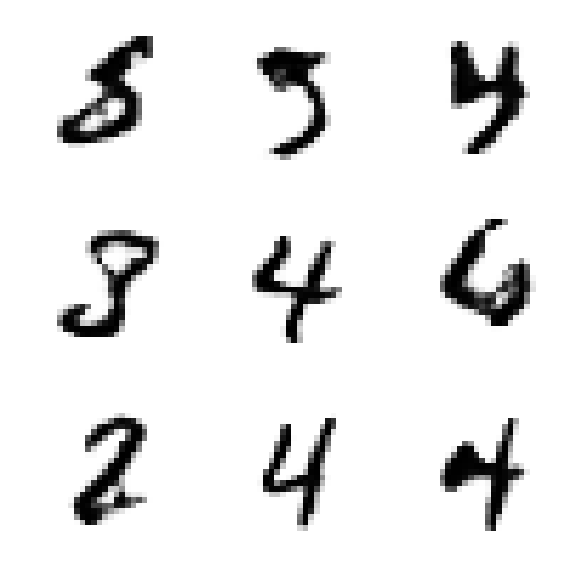 5 5 4
8 4 6
2 4 4